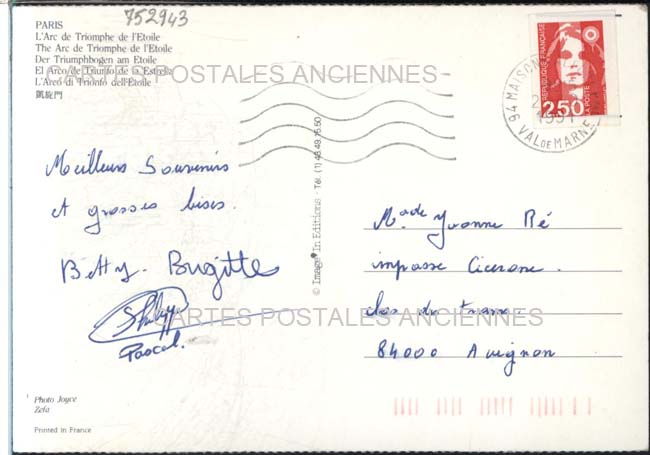 752943
PARIS
L'Arc de Triomphe de l'Etoile
The Arc de Triomphe de l'Etoile
Der Triumphbogen am Etoile
El Arco de Triunfo de la Estrella
L'Arco di Trionfo dell'Etoile
凱旋門
CARTES POSTALES ANCIENNES
RÉPUBLIQUE FRANÇAISE
LA POSTE
2,50
94 MAISON
1991
VAL DE MARNE
Meilleurs Souvenirs
et grosses bises.
Betty. Brigitte
Philipp
Pascal.
© Image'In Editions - Tél. (1) 48.49.15.50
Made Yvonne Ré
impasse Cicerone.
clos du
84000 Avignon
CARTES POSTALES ANCIENNES
Photo Joyce
Zefa
Printed in France